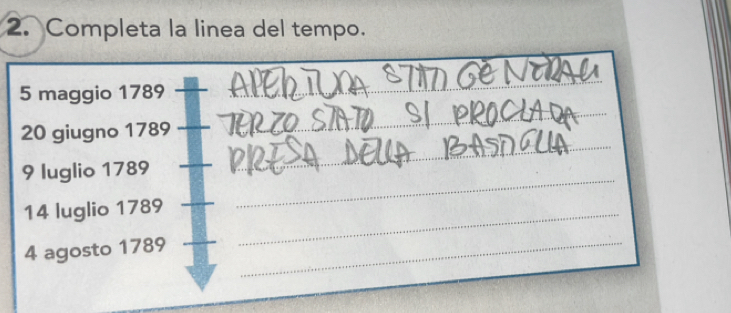 2. Completa la linea del tempo.
5 maggio 1789 APERTURA STATI GENERALI
20 giugno 1789 TERZO STATO SI PROCLAMA
9 luglio 1789 PRESA DELLA BASTIGLIA
14 luglio 1789
4 agosto 1789